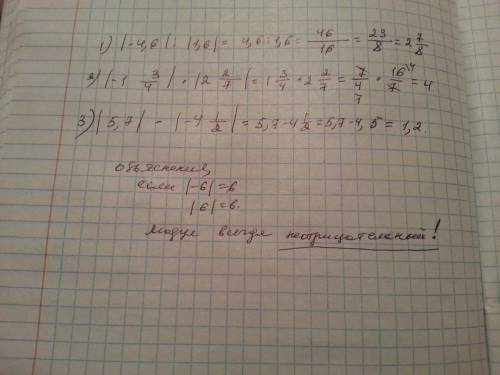 1) |-4,6| : |1,6| = 4,6 : 1,6 = 46/16 = 23/8 = 2 7/8
2) |-1 3/4| · |2 2/7| = 1 3/4 · 2 2/7 = 7/4 · 16/7 = 4
3) |5,7| - |-4 1/2| = 5,7 - 4 1/2 = 5,7 - 4,5 = 1,2
объяснения,
если |-6| = 6
|6| = 6.
Модул всегда неотрицательный!